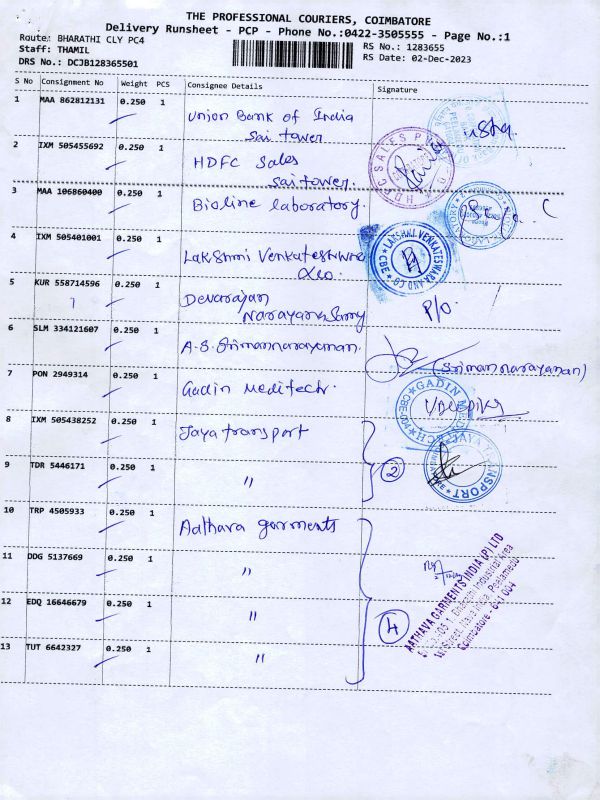 THE PROFESSIONAL COURIERS, COIMBATORE
Delivery Runsheet - PCP - Phone No.:0422-3505555 - Page No.:1
Route: BHARATHI CLY PC4
Staff: THAMIL
DRS No.: DCJB128365501
RS No.: 1283655
RS Date: 02-Dec-2023
S No Consignment No Weight PCS Consignee Details Signature
1 MAA 862812131 0.250 1 Union Bank of India
Sai tower
2 IXM 505455692 0.250 1 HDFC Sales
Sai tower.
HDFC SALES
3 MAA 106860400 0.250 1 Bioline laboratory.
4 IXM 505401001 0.250 1 Lakshmi Venkateshwara
LAKSHMI VENKATESWARA AND CO CBE-3
5 KUR 558714596 0.250 1 Devarajan
Narayana Samy P/O.
6 SLM 334121607 0.250 1 A.S. Srimannarayanan.
(Srimannarayanan)
7 PON 2949314 0.250 1 Gadin Meditech.
8 IXM 505438252 0.250 1 Jaya transport
JAYA TRANSPORT
9 TDR 5446171 0.250 1 "
2
10 TRP 4505933 0.250 1 Aathava garments
11 DDG 5137669 0.250 1 "
12 EDQ 16646679 0.250 1 "
4
AATHAVA GARMENTS INDIA (P) LTD
Industrial Area
Peelamedu
Coimbatore - 641 004
13 TUT 6642327 0.250 1 "